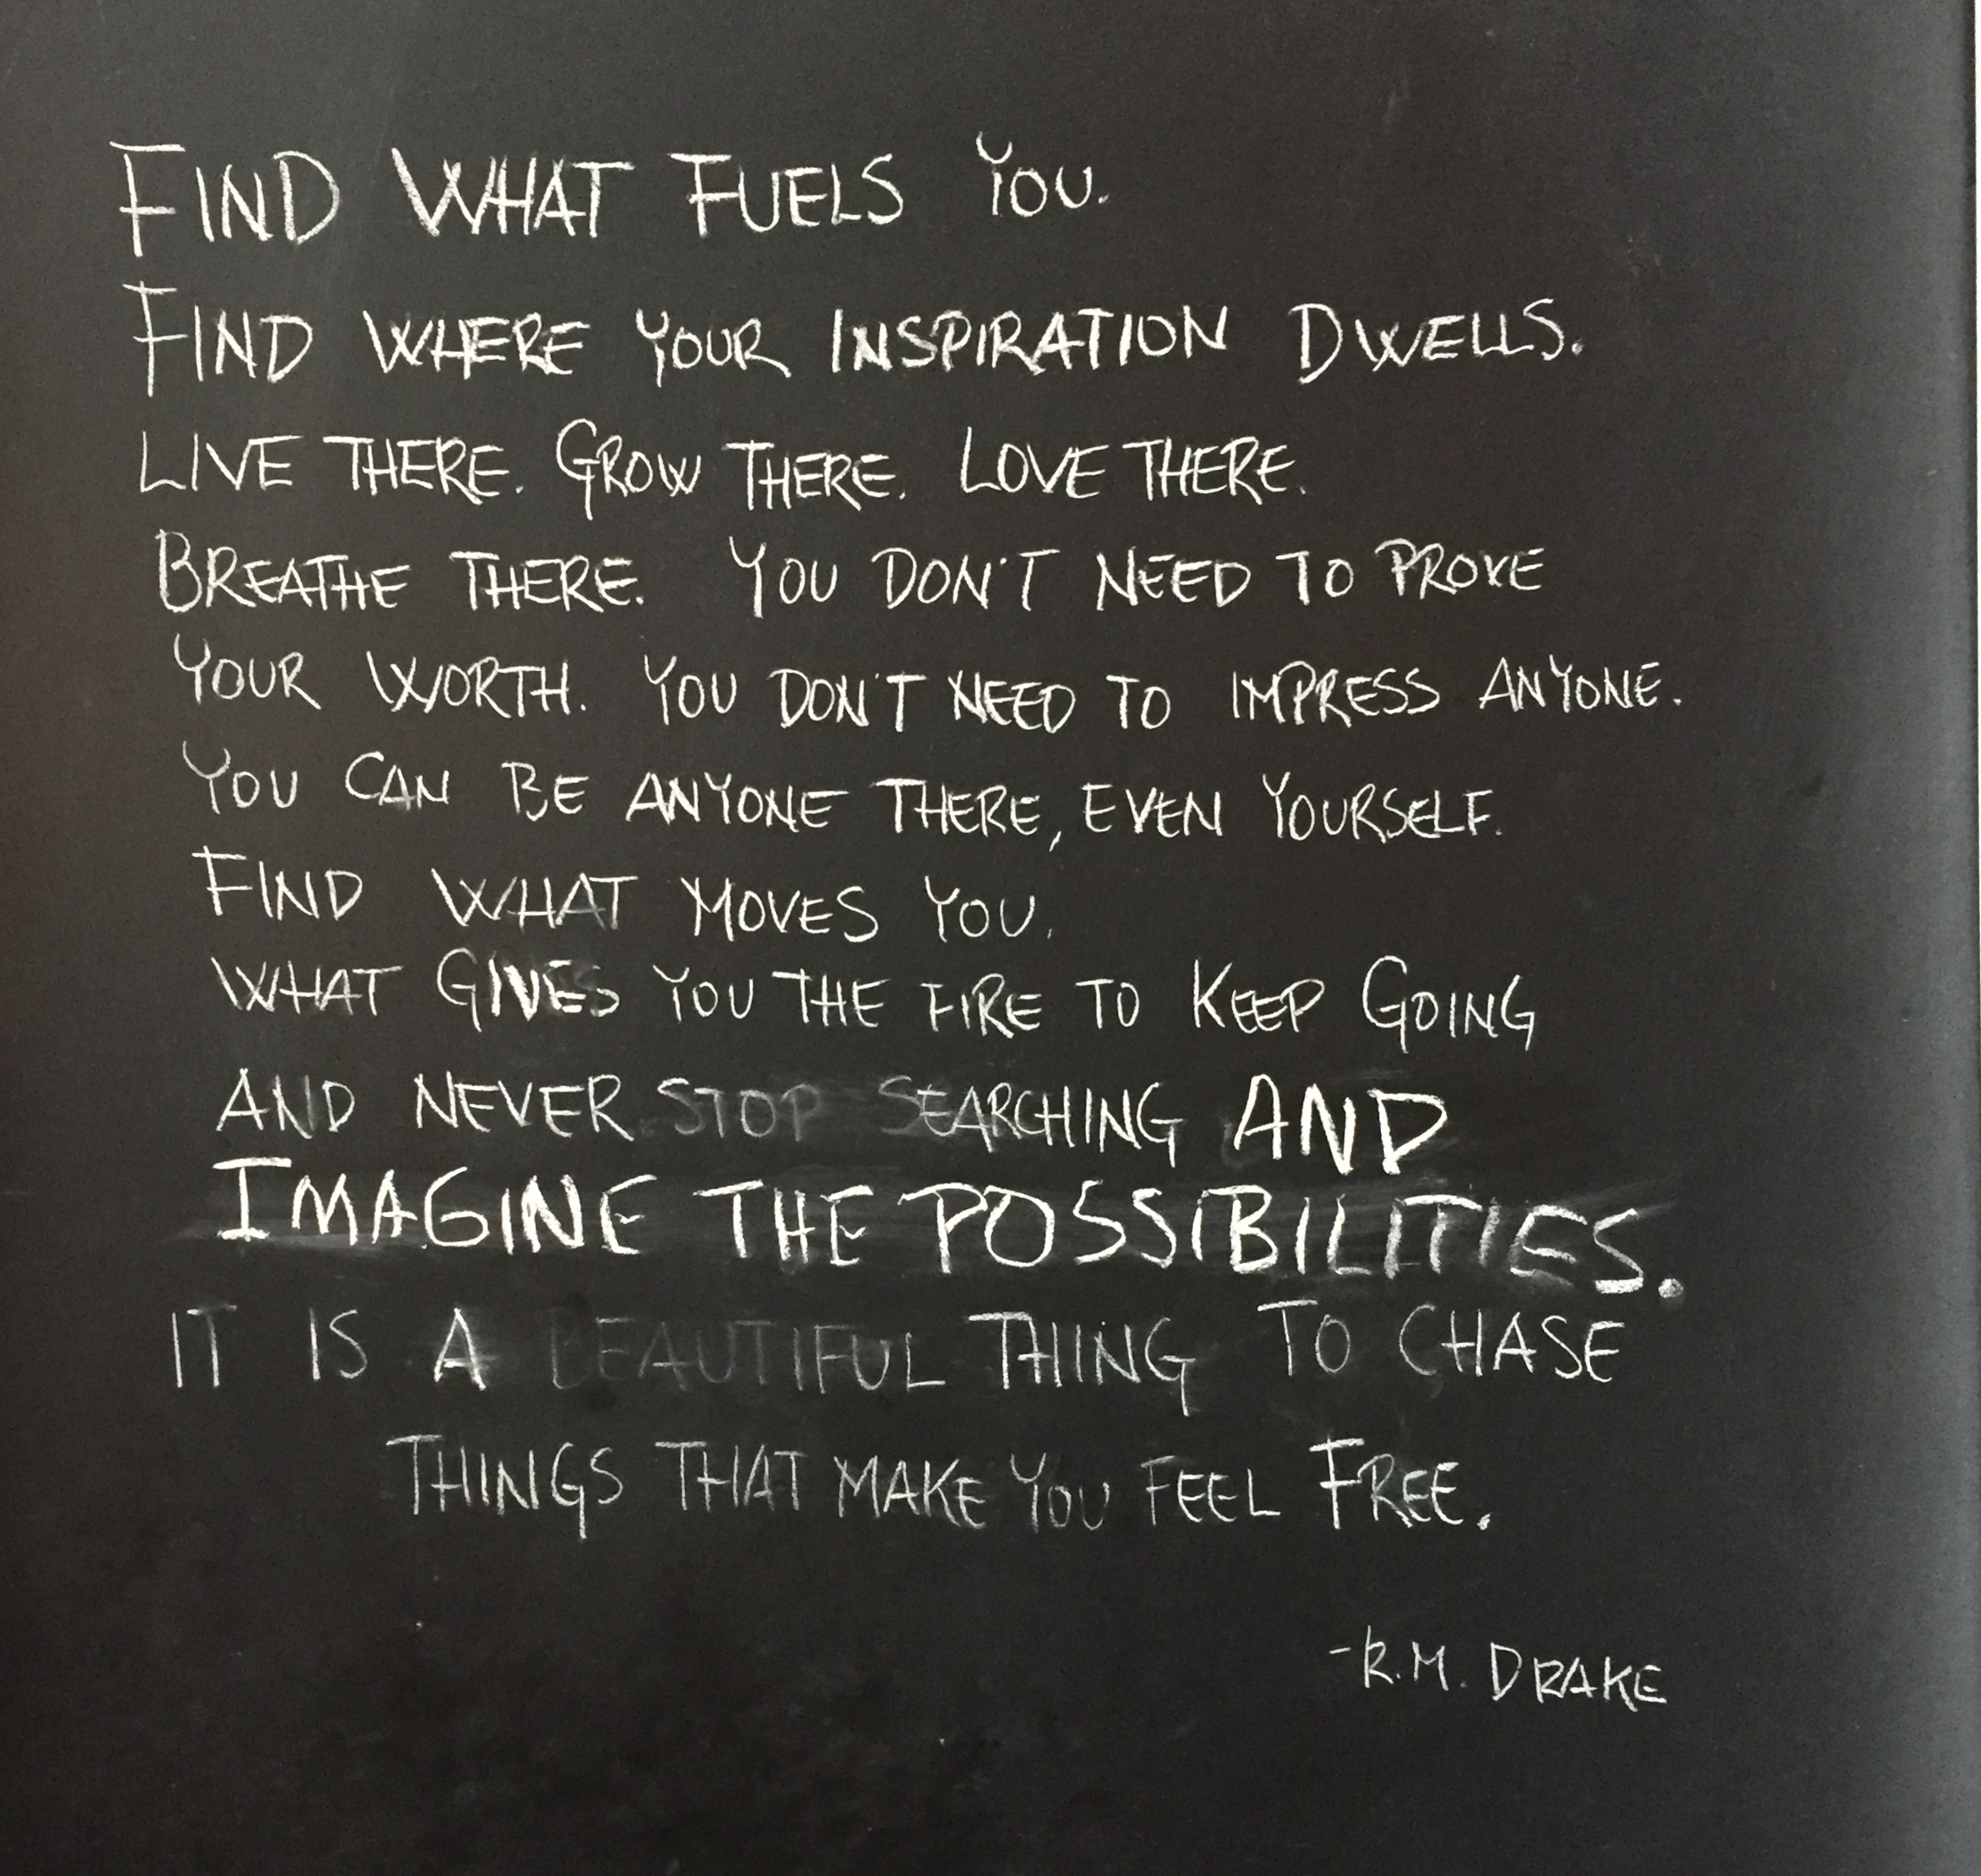 FIND WHAT FUELS YOU.
FIND WHERE YOUR INSPIRATION DWELLS.
LIVE THERE. GROW THERE. LOVE THERE.
BREATHE THERE. YOU DON'T NEED TO PROVE
YOUR WORTH. YOU DON'T NEED TO IMPRESS ANYONE.
YOU CAN BE ANYONE THERE, EVEN YOURSELF.
FIND WHAT MOVES YOU.
WHAT GIVES YOU THE FIRE TO KEEP GOING
AND NEVER STOP SEARCHING AND
IMAGINE THE POSSIBILITIES.
IT IS A BEAUTIFUL THING TO CHASE
THINGS THAT MAKE YOU FEEL FREE.
-R.M. DRAKE